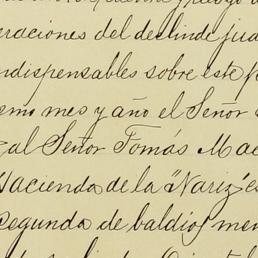 eraciones del deslinde jud
ndispensables sobre este p
emo mes y año el Señor
al Señor Tomás Mac
Hacienda de la "Nariz" es
Segunda de baldíos men